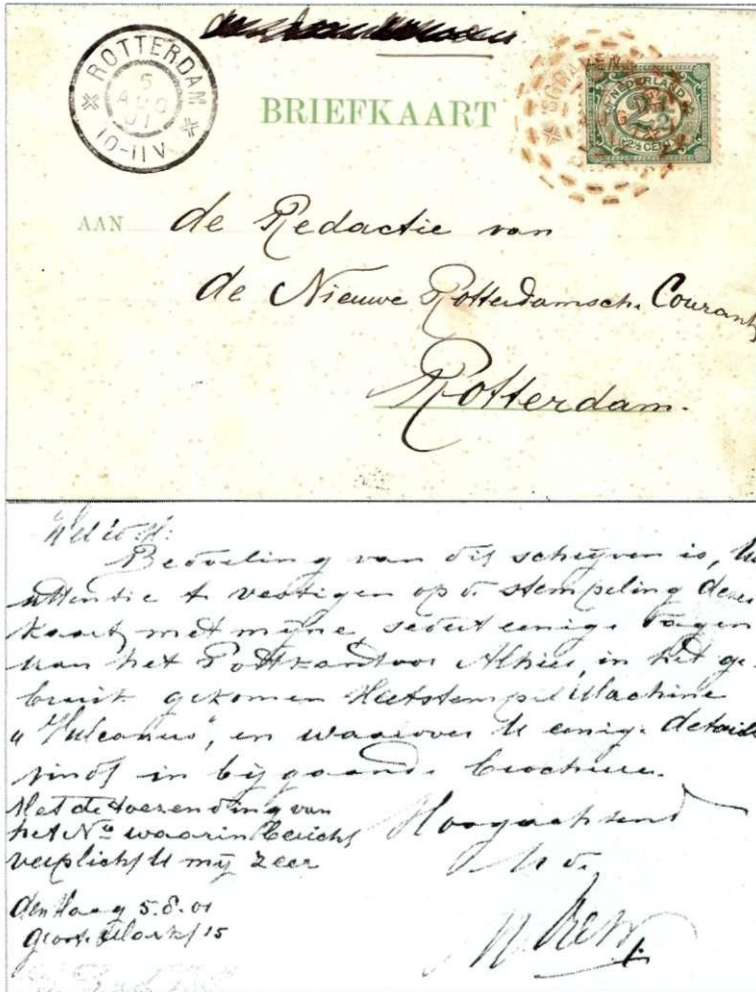 ROTTERDAM
5
AUG
01
10-11V
BRIEFKAART
NEDERLAND
2½
2½ CENT
AAN de Redactie van
de Nieuwe Rotterdamsch. Courant
Rotterdam.
Bedoeling van dit schrijven is, Uw
attentie te vestigen op de stempeling dezer
kaart, met mijne, sedert eenige dagen
aan het Postkantoor Alhier, in het ge-
bruik gekomen Heetstempel Machine
"Vulcanus", en waarover U eenige details
vindt in bijgaande brochure.
Met de toezending van
het No waarin bericht
verplicht U mij zeer
Hoogachtend
Uw d.
den Haag 5.8.01
Groote Markt 15